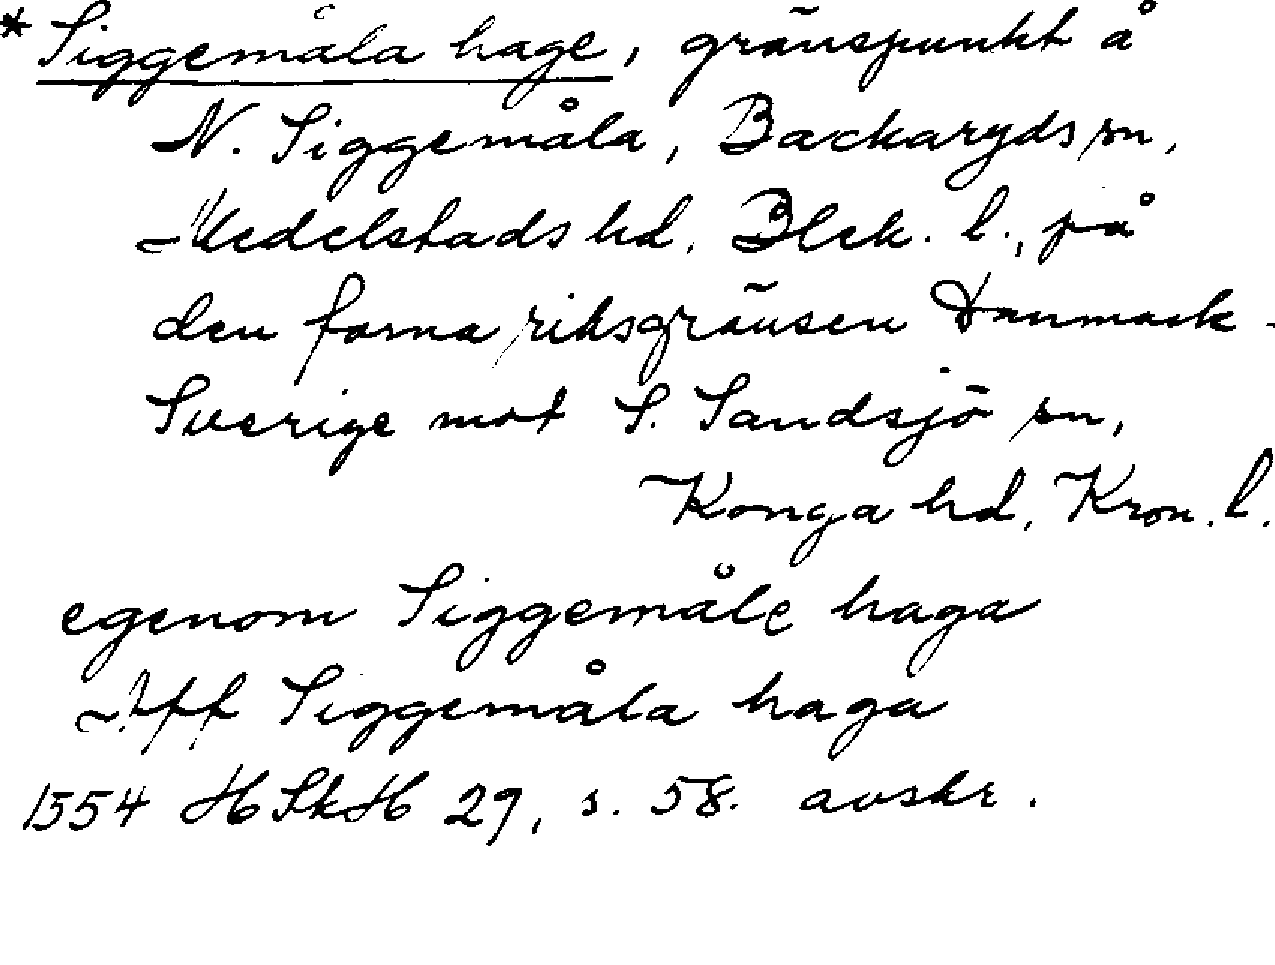 * Siggemåla hage, gränspunkt å
N. Siggemåla, Backaryds sn,
Medelstads hd. Blek. l., på
den forna riksgränsen Danmark-
Sverige mot S. Sandsjö sn,
Konga hd, Kron. l.
egenom Siggemåle haga
Aff Siggemåla haga
1554 HSkH 29, s. 58. avskr.